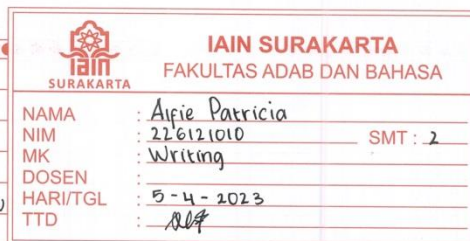 iain
SURAKARTA
IAIN SURAKARTA
FAKULTAS ADAB DAN BAHASA
NAMA : Alfie Patricia
NIM : 226121010 SMT : 2
MK : Writing
DOSEN :
HARI/TGL : 5 - 4 - 2023
TTD :